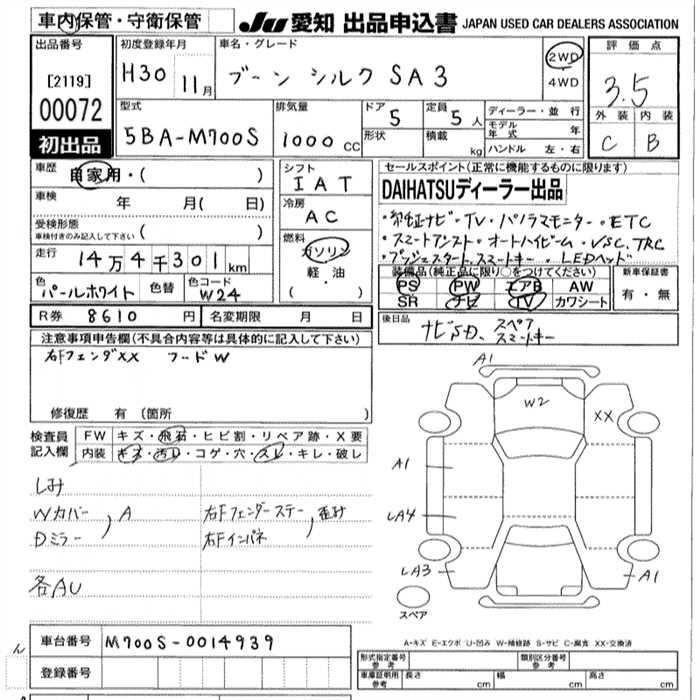 車内保管・守衛保管
JU 愛知 出品申込書 JAPAN USED CAR DEALERS ASSOCIATION
出品番号
[2119]
00072
初出品
初度登録年月
H30 11月
車名・グレード
ブーン シルク SA3
2WD
4WD
評価点
3.5
外装 内装
C B
型式
5BA-M700S
排気量
1000 CC
ドア 5
形状
定員 5 人
積載 kg
ディーラー・並行
モデル年式 年
ハンドル 左・右
車歴 自家用・( )
車検 年 月( 日)
受検形態
車検付きのみ記入して下さい ( )
走行 14万4千301 km
色 パールホワイト 色替 色コード W24
シフト
IAT
冷房
AC
燃料
ガソリン
軽油
( ・ )
セールスポイント(正常に機能するものに限ります)
DAIHATSUディーラー出品
・純正ナビ・TV・パノラマモニター・ETC
・スマートアシスト・オートハイビーム・VSC.TRC
・プッシュスタート.スマートキー・LEDヘッド
装備品(純正品に限り○をつけてください)
PS PW エアB AW
SR ナビ TV カワシート
新車保証書
有・無
R券 8610 円 名変期限 月 日
後日品 ナビSD、スペアスマートキー
注意事項申告欄(不具合内容等は具体的に記入して下さい)
右Fフェンダ XX フードW
修復歴 有 (箇所 )
検査員記入欄
FW キズ・飛石・ヒビ割・リペア跡・X要
内装 キズ・汚レ・コゲ・穴・スレ・キレ・破レ
しみ
Wカバー
Dミラー , A
右Fフェンダーステー
右Fインパネ , 歪み
各AU
A1
W2
XX
A1
LA4
LA3
A1
スペア
A-キズ E-エクボ U-凹み W-補修跡 S-サビ C-腐食 XX-交換済
車台番号 M700S-0014939
登録番号
形式指定番号 参考
類別区分番号 参考
車庫証明用 参考 長さ cm 幅 cm 高さ cm
ん